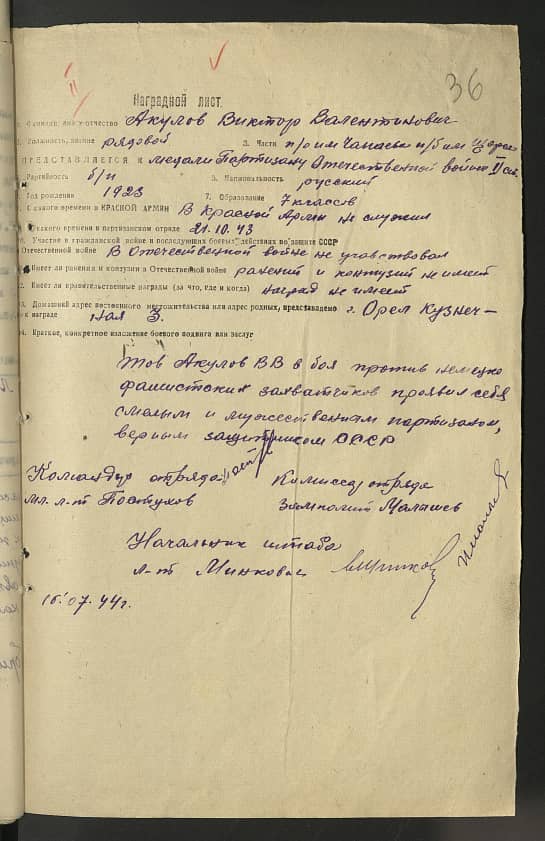 36
Наградной лист.
1. Фамилия, имя и отчество Акулов Виктор Валентинович
2. Должность, звание рядовой 3. Части п/о им Чапаева п/б им Щорса
ПРЕДСТАВЛЯЕТСЯ к медали Партизану Отечественной войны II ст.
4. Партийность б/п 5. Национальность русский
6. Год рождения 1923 7. Образование 7 классов
8. С какого времени в КРАСНОЙ АРМИИ В Красной Армии не служил
9. С какого времени в партизанском отряде 21.10.43
10. Участие в гражданской войне и последующих боевых действиях по защите СССР
и Отечественной войне В Отечественной войне не участвовал
11. Имеет ли ранения и контузии в Отечественной войне ранений и контузий не имеет
12. Имеет ли правительственные награды (за что, где и когда) наград не имеет
13. Домашний адрес местожительства или адрес родных, представляемого г. Орел Кузнеч-
к награде ная 3.
14. Краткое, конкретное изложение боевого подвига или заслуг
Тов Акулов ВВ в боя против немецко
фашистских захватчиков проявил себя
смелым и мужественным партизаном,
верным защитником СССР
Командир отряда Комиссар отряда
Мл. л-т Пастухов Замполит Малышев
Начальник штаба
л-т Минков
16.07.44г.